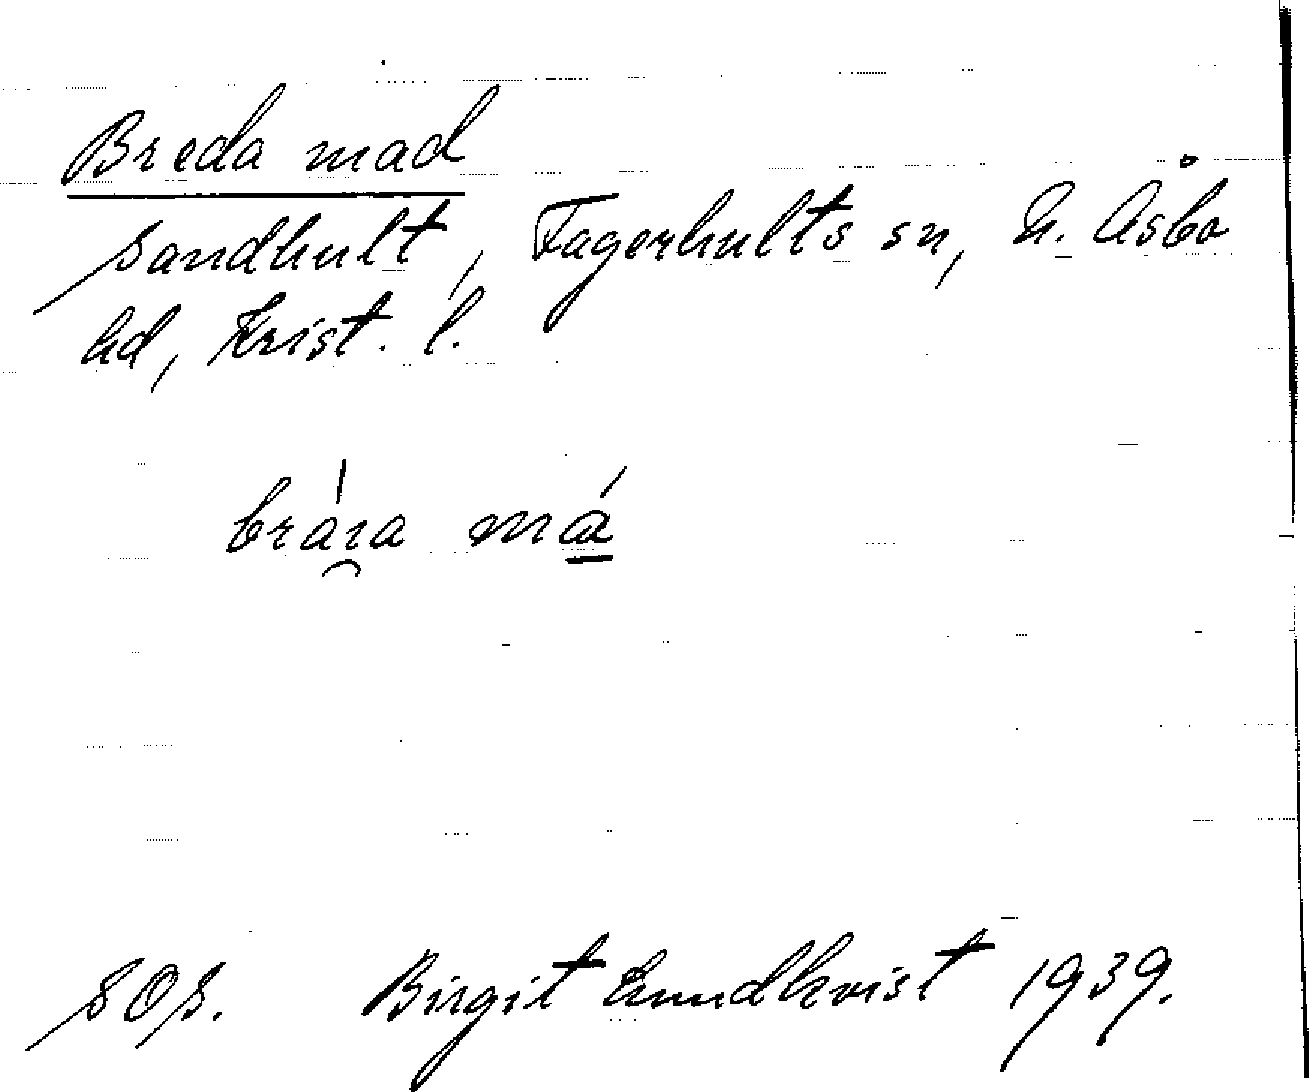 Breda mad
Sandhult, Fagerhults sn, N. Åsbo
hd, Krist. l.
bráıa má
SOS. Birgit Lundkvist 1939.